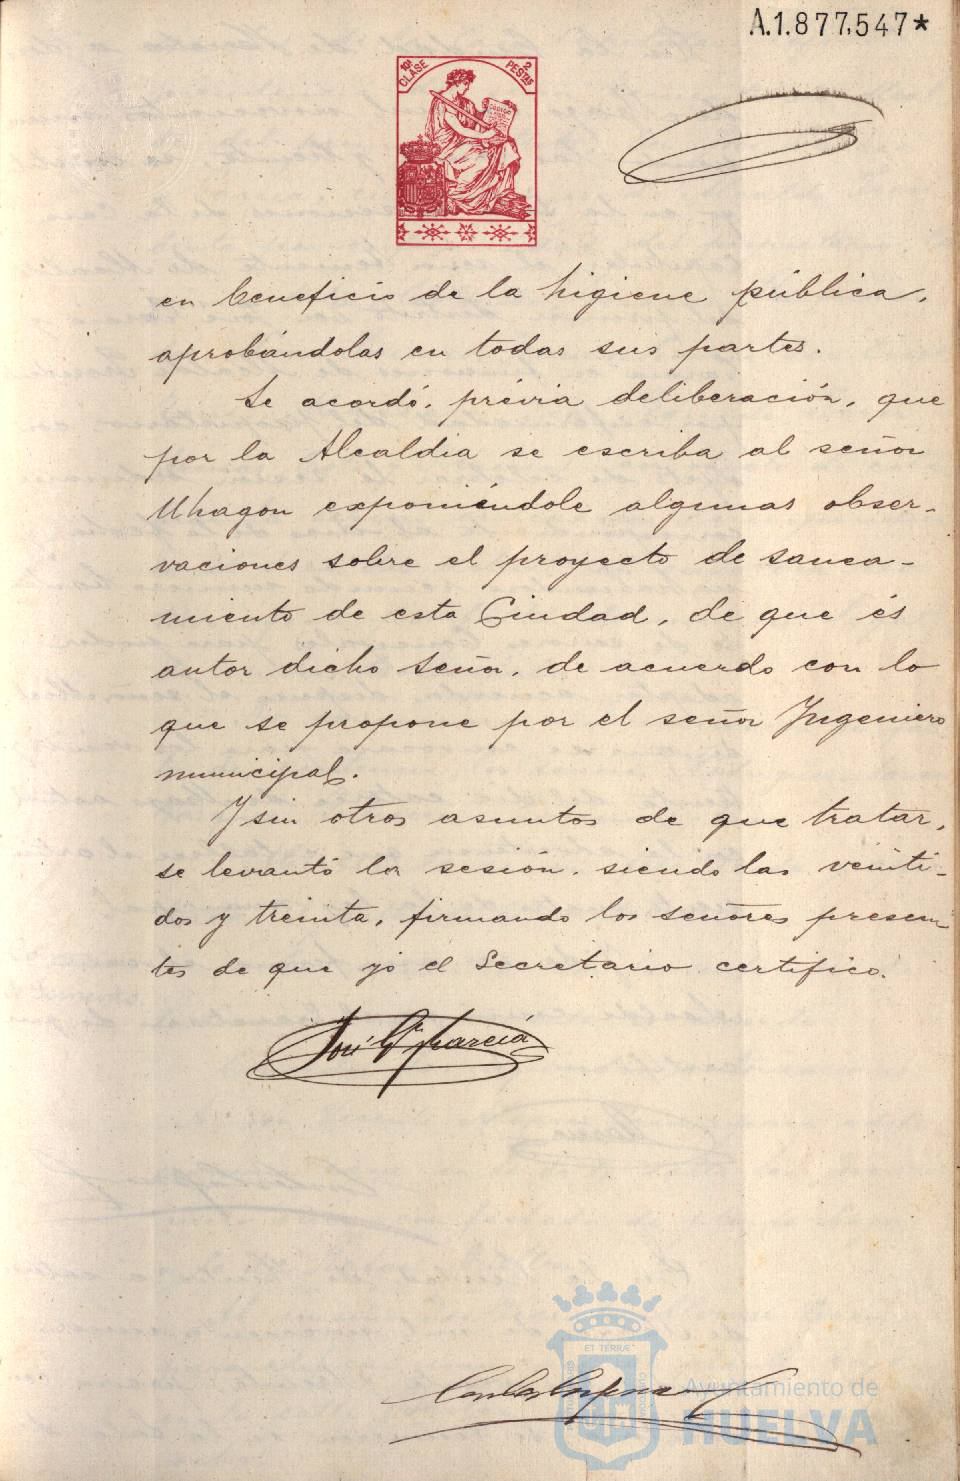 A.1.877,547*
10ª CLASE
2 PESTAS
en beneficio de la higiene pública,
aprobándolas en todas sus partes.
Se acordó, prévia deliberación, que
por la Alcaldia se escriba al señor
Uhagon exponiéndole algunas obser-
vaciones sobre el proyecto de sanea-
miento de esta Ciudad, de que és
autor dicho señor, de acuerdo con lo
que se propone por el señor Ingeniero
municipal.
Y sin otros asuntos de que tratar,
se levantó la sesión, siendo las veinti-
dos y treinta, firmando los señores presen
tes de que yo el Secretario certifico.
José Gª García
ET TERRÆ
Ayuntamiento de
HUELVA